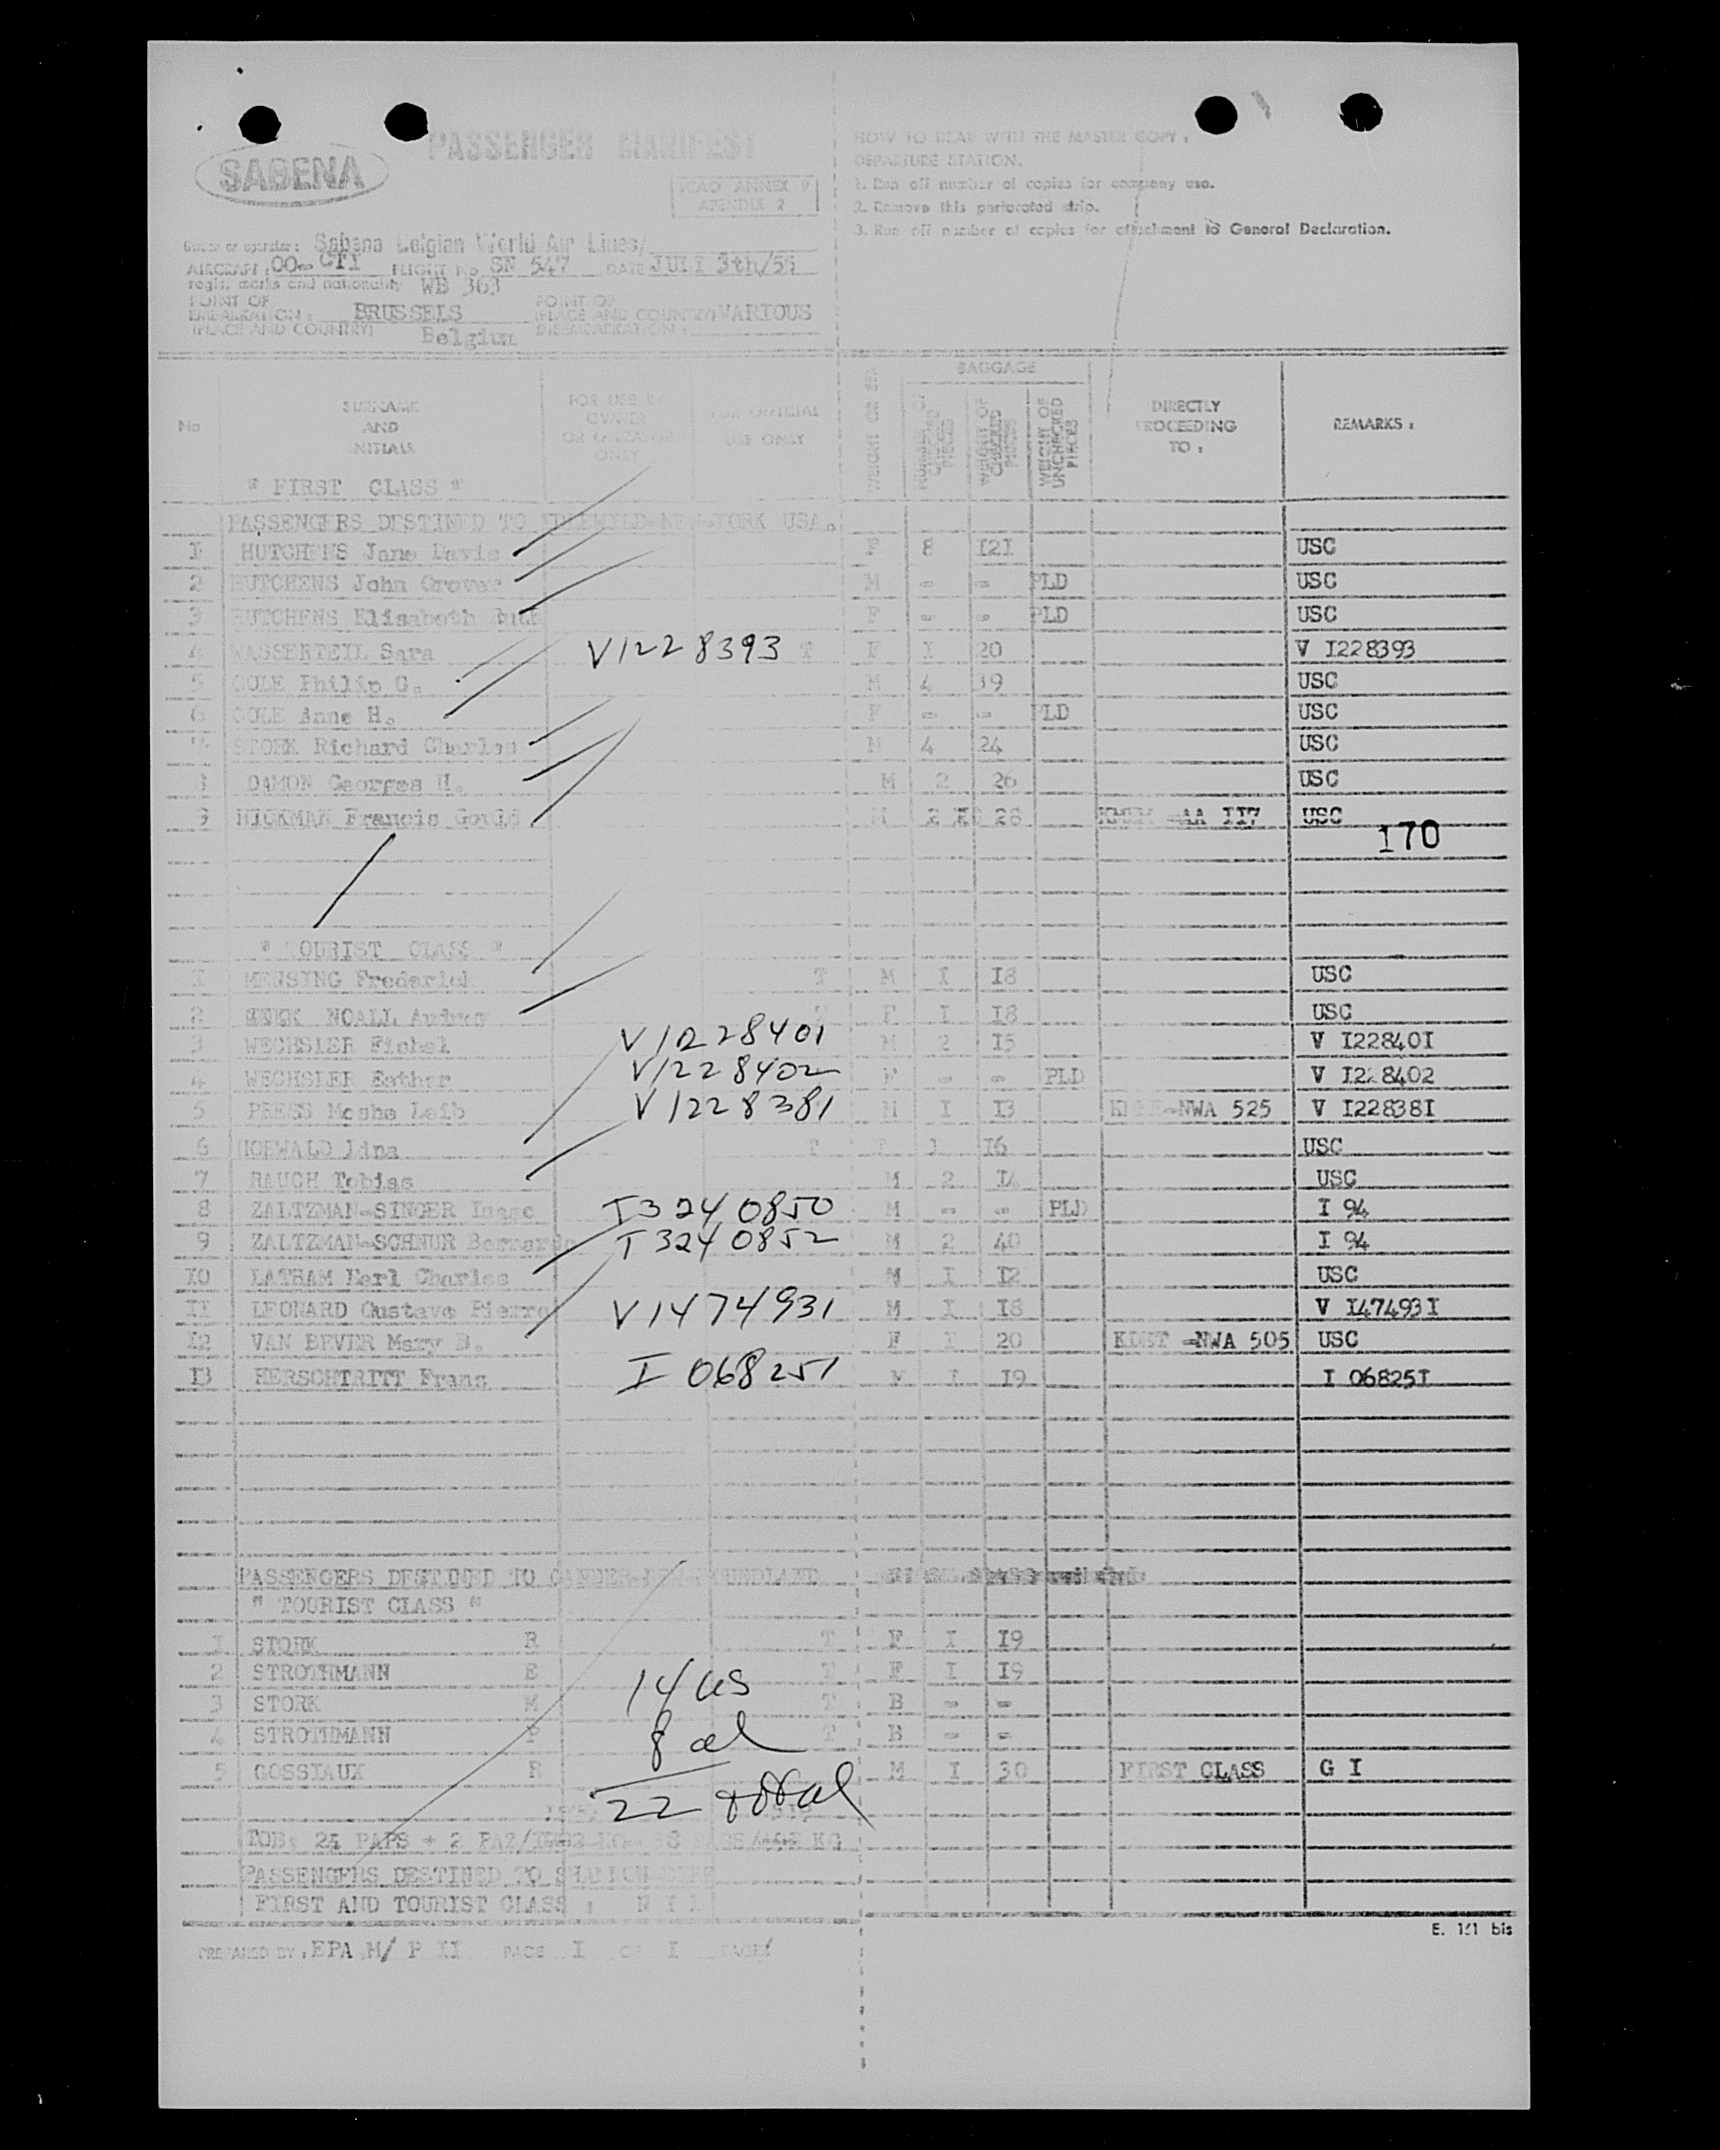 PASSENGER MANIFEST
SABENA
ICAO ANNEX 9
APENDIX 2
HOW TO DEAL WITH THE MASTER COPY :
DEPARTURE STATION.
1. Run off number of copies for company use.
2. Remove this perforated strip.
3. Run off number of copies for attachment to General Declaration.
Owner or operator: Sabena Belgian World Air Lines/
AIRCRAFT : OO- CTI FLIGHT No SN 547 DATE JULI 3th/55
regis. marks and nationality WB 363
POINT OF EMBARKATION : (PLACE AND COUNTRY) BRUSSELS Belgium
POINT OF (PLACE AND COUNTRY) DISEMBARKATION : VARIOUS
No
SURNAME AND INITIALS
FOR USE BY OWNER OR OPERATOR ONLY
FOR OFFICIAL USE ONLY
BAGGAGE
NUMBER OF CHECKED PIECES
WEIGHT OF CHECKED PIECES
WEIGHT OF UNCHECKED PIECES
DIRECTLY PROCEEDING TO :
REMARKS :
" FIRST CLASS "
PASSENGERS DESTINED TO IDLEWILD-NEW-YORK USA.
1 HUTCHENS Jane Davis F 8 I2I USC
2 HUTCHENS John Grover M = = PLD USC
3 HUTCHENS Elisabeth F = = PLD USC
4 WASSERTEIL Sara V1228393 T F I 20 V I228393
5 COLE Philip G. M 4 39 USC
6 COLE Anne H. F = = PLD USC
7 STORK Richard Charles M 4 24 USC
8 DAMON Georges H. M 2 26 USC
9 HICKMAN Francis Gould M 2 26 AA II7 USC
170
" TOURIST CLASS "
1 MENSING Frederick T M I I8 USC
2 NOALL Audrey T F I I8 USC
3 WECHSLER Fishel V1228401 M 2 I5 V I22840I
4 WECHSLER Esther V1228402 F = = PLD V I228402
5 PRESS Moshe Leib V1228381 M I I3 NWA 525 V I22838I
6 HOEWALD Lina T F I I6 USC
7 RAUCH Tobias M 2 I4 USC
8 ZALTZMAN-SINGER Isaac I3240850 M = = PLD I 94
9 ZALTZMAN-SCHNUR Bernardo I3240852 M 2 40 I 94
IO LATHAM Earl Charles M I I2 USC
II LEONARD Gustave Pierre V1474931 M I I8 V I47493I
I2 VAN BEVER Mary B. F I 20 KDET =NWA 505 USC
I3 HERSCHTRITT Frans I 068251 M I I9 I 06825I
PASSENGERS DESTINED TO GANDER-NEWFOUNDLAND
" TOURIST CLASS "
1 STORK R T F I I9
2 STROTHMANN E T F I I9
3 STORK M T B = =
4 STROTHMANN P T B = =
5 GOSSIAUX R M I 30 FIRST CLASS G I
14 US
8 al
22 total
TOB: 24 PAPS + 2 PAZ/
PASSENGERS DESTINED TO SHANNON
FIRST AND TOURIST CLASS : N I L
PREPARED BY : EPA M/ P II PAGE I OF I PAGES
E. 131 bis